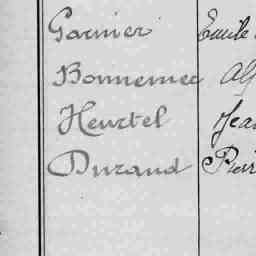 Garnier Emile
Bonnemec Alf
Heurtel Jea
Durand Pier